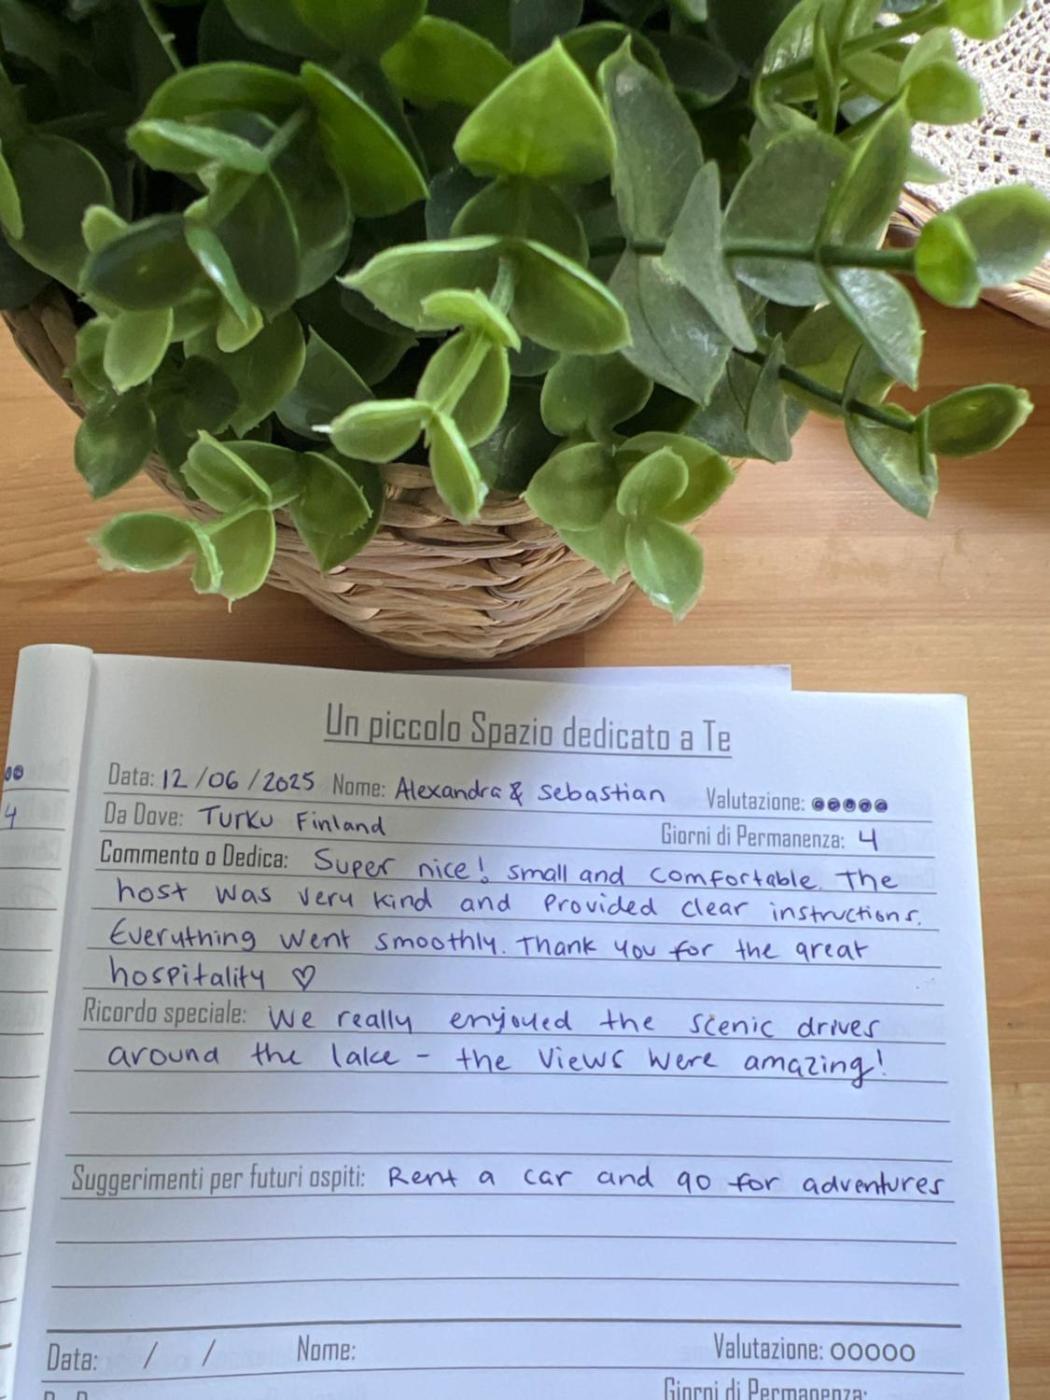 Un piccolo Spazio dedicato a Te
Data: 12/06/2025 Nome: Alexandra & Sebastian Valutazione: ●●●●●
Da Dove: Turku Finland Giorni di Permanenza: 4
Commento o Dedica: Super nice! small and comfortable. The
host was very kind and provided clear instructions.
Everything went smoothly. Thank you for the great
hospitality ♡
Ricordo speciale: We really enjoyed the scenic drives
around the lake - the views were amazing!
Suggerimenti per futuri ospiti: Rent a car and go for adventures
Data: / / Nome: Valutazione: OOOOO
Giorni di Permanenza:
4